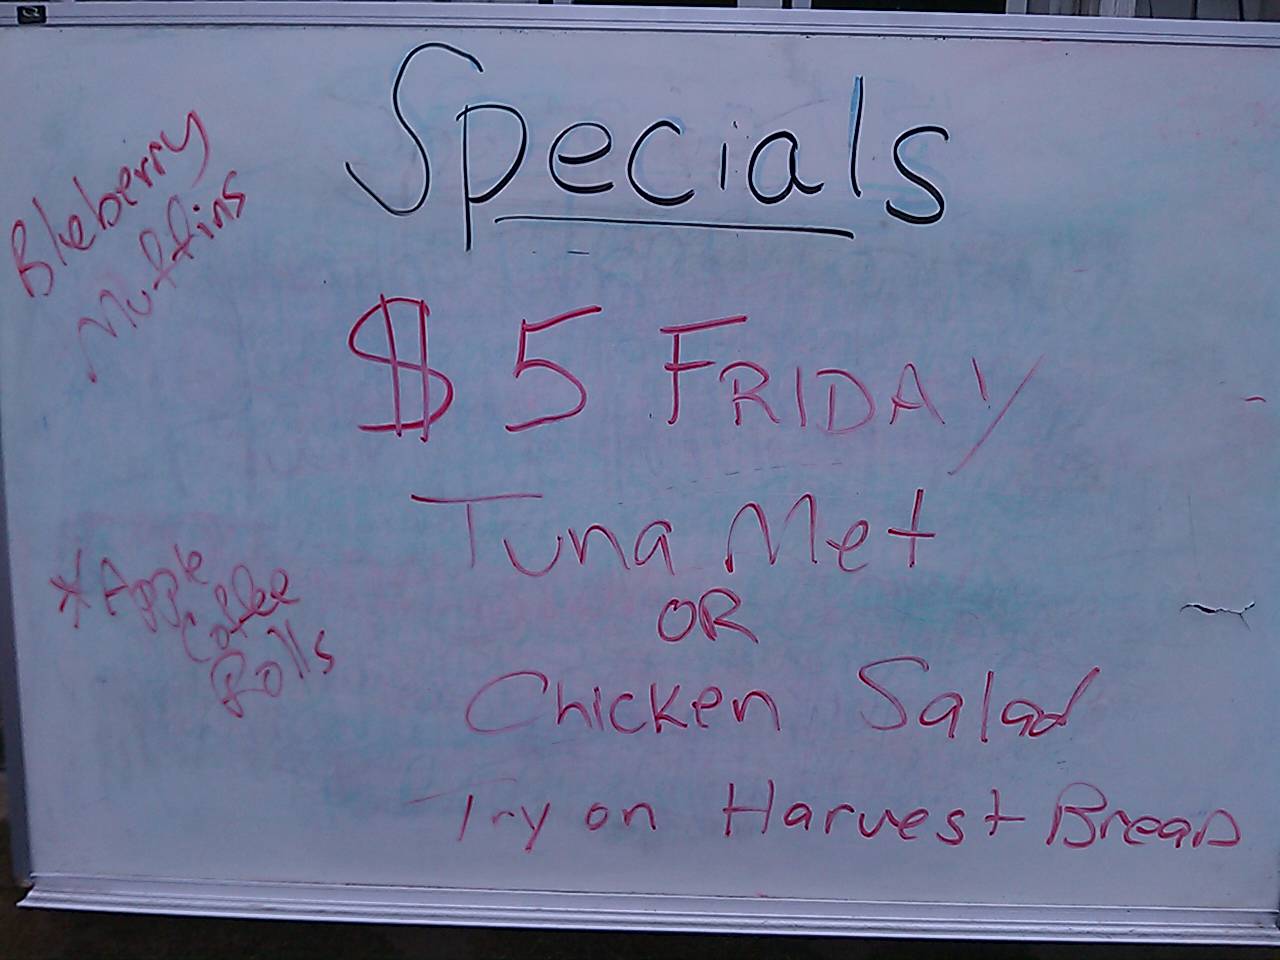 Specials
Blueberry
Muffins
$5 FRIDAY
Tuna Met
OR
Chicken Salad
Try on Harvest Bread
*Apple
Coffee
Rolls